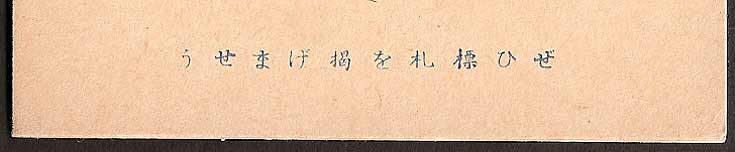 ぜひ標札を掲げませう